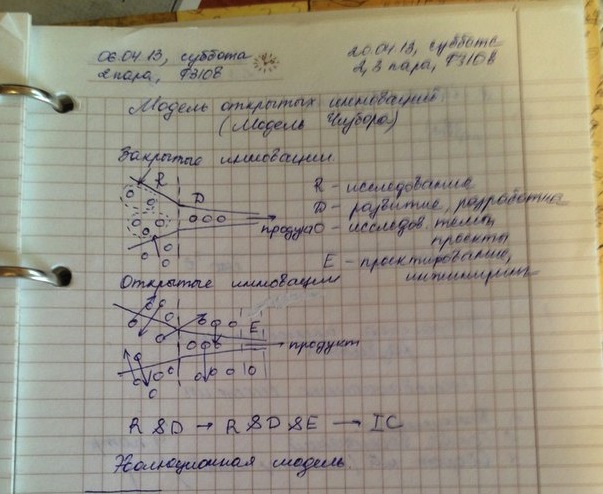 06.04.13, суббота
2 пара, Ф3108
20.04.13, суббота
2, 3 пара, Ф3108
Модель открытых инноваций
(Модель Чизбора)
Закрытые инновации
R D
продукт
R - исследование
D - развитие, разработка
O - исследов. темы,
проекты
E - проектирование,
инжиниринг
Открытые инновации
E
продукт
R & D → R & D & E → IC
модель.